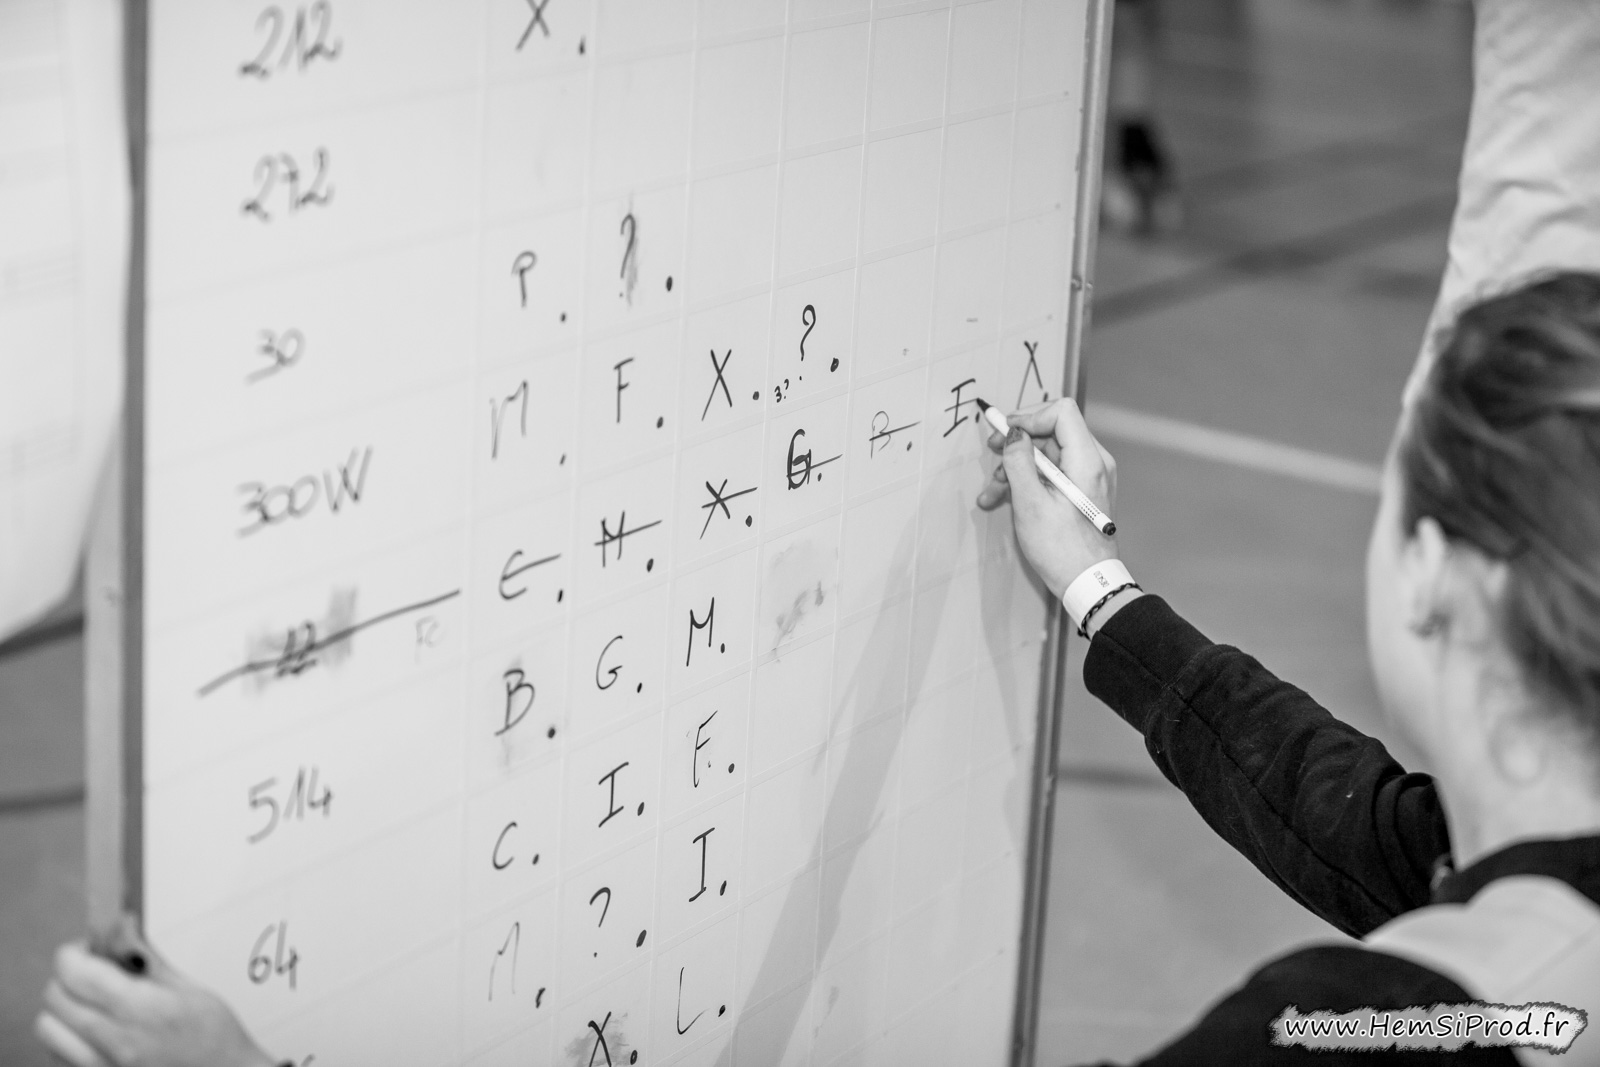 212 X.
272
30 P. ?.
300W M. F. X. 3? ?.
22 FC E. H. X. G. B. I. X.
514 B. G. M.
64 C. I. F.
M. ?. I.
X. L.
www.HemSiProd.fr